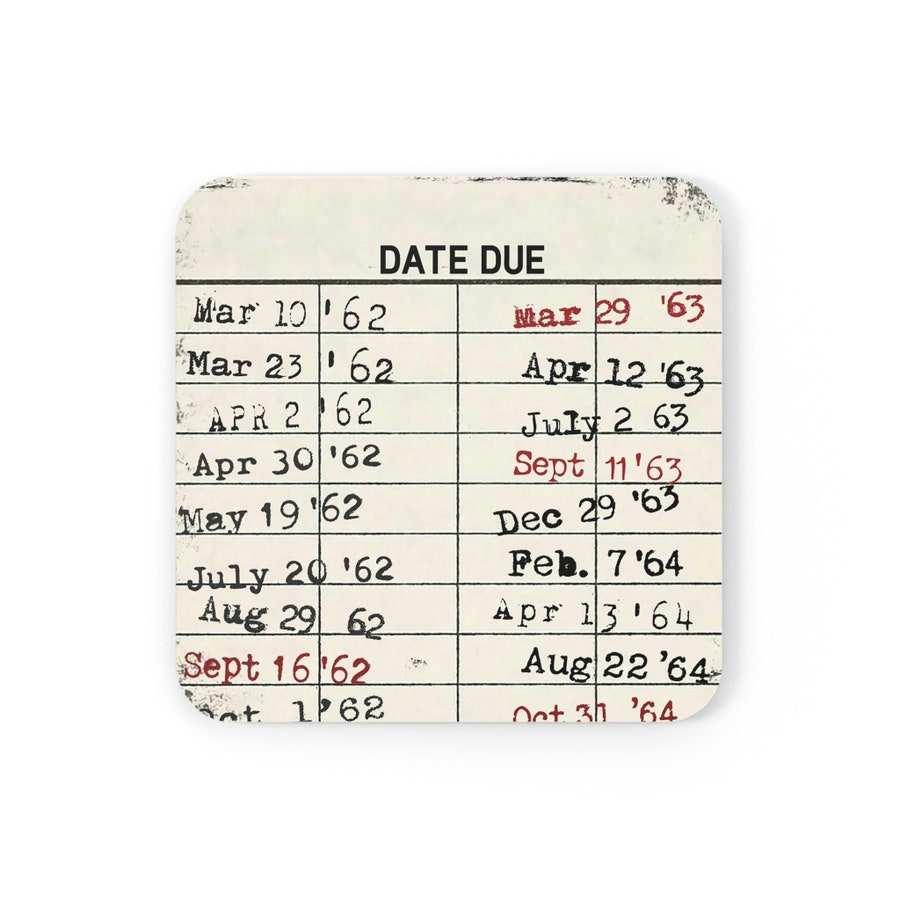 DATE DUE
Mar 10 '62
Mar 23 '62
APR 2 '62
Apr 30 '62
May 19 '62
July 20 '62
Aug 29 62
Sept 16 '62
1'62
Mar 29 '63
Apr 12 '63
July 2 63
Sept 11 '63
Dec 29 '63
Feb. 7 '64
Apr 13 '64
Aug 22 '64
Oct 31 '64